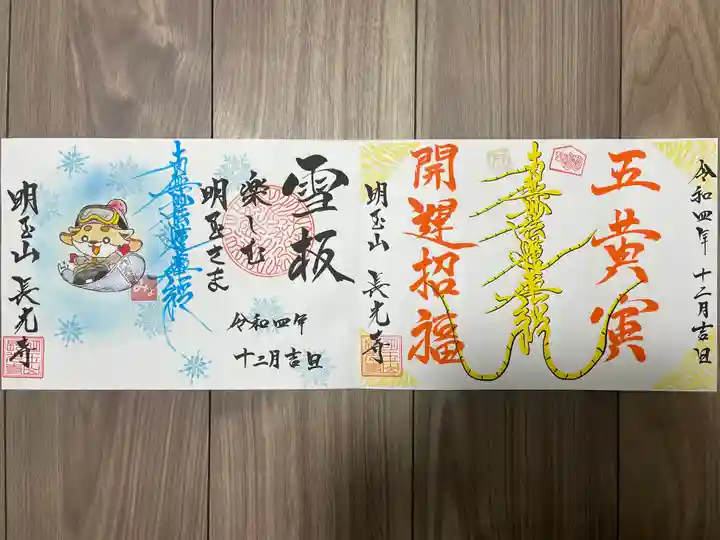 令和四年 十二月吉日
五黄寅
南無妙法蓮華経
開運招福
明玉山 長光寺
雪板
楽しむ
明玉さま
令和四年
十二月吉日
南無妙法蓮華経
明玉山 長光寺